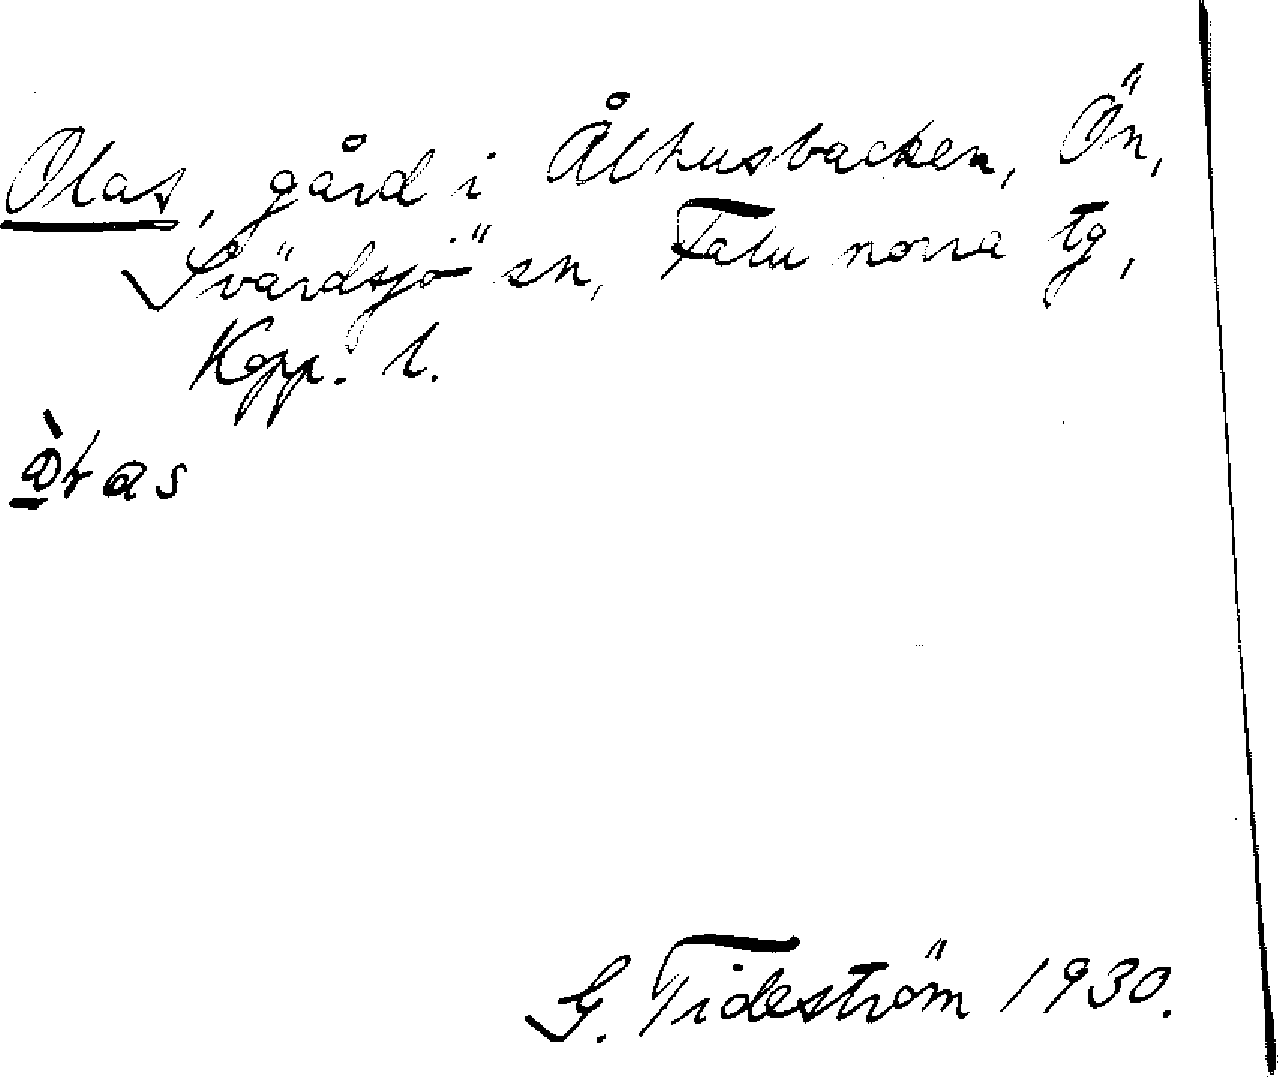 Olas, gård i Ålhusbacken, Ön,
Svärdsjö sn, Falu norra tg,
Kopp. l.
G. Tideström 1930.